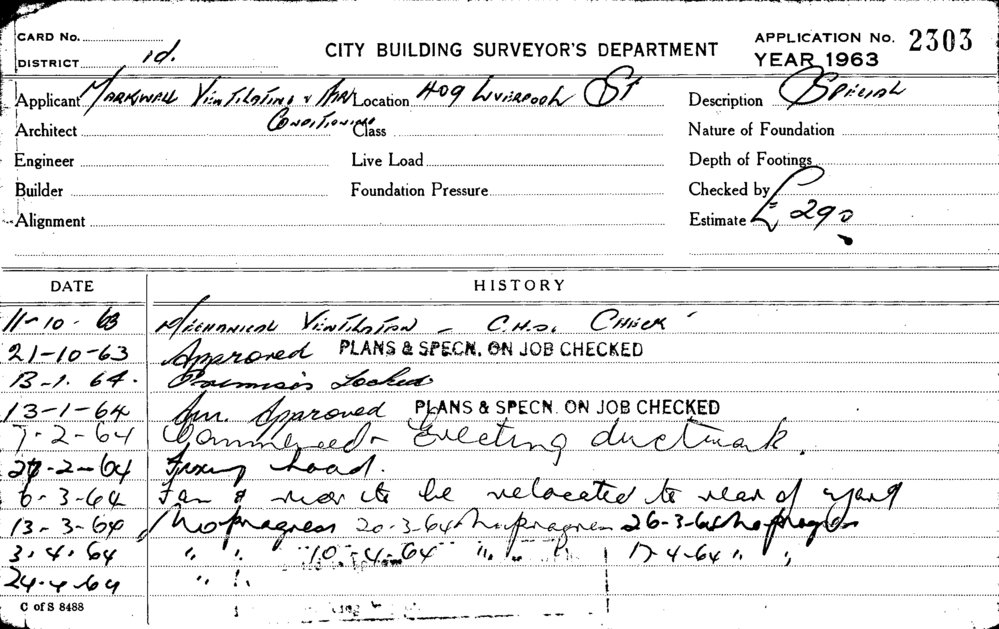 CARD No.
DISTRICT 1d.
CITY BUILDING SURVEYOR'S DEPARTMENT
APPLICATION No. 2303
YEAR 1963
Applicant MARKWELL VENTILATING & AIR CONDITIONING Location 409 LIVERPOOL ST Description SPECIAL
Architect Class Nature of Foundation
Engineer Live Load Depth of Footings
Builder Foundation Pressure Checked by
Alignment Estimate £290
DATE HISTORY
11-10-63 MECHANICAL VENTILATION - CHECK
21-10-63 Approved PLANS & SPECN. ON JOB CHECKED
13-1-64. Premises Locked
13-1-64 Approved PLANS & SPECN. ON JOB CHECKED
7-2-64 Commenced - Erecting ductwork.
2-64 Fixing hood.
6-3-64 Fan & to be relocated to rear of yard
13-3-64 No progress 20-3-64 No progress 26-3-64 No progress
3.4.64 " " 10-4-64 " " 17-4-64 " "
24-4-64 " "
C of S 8488